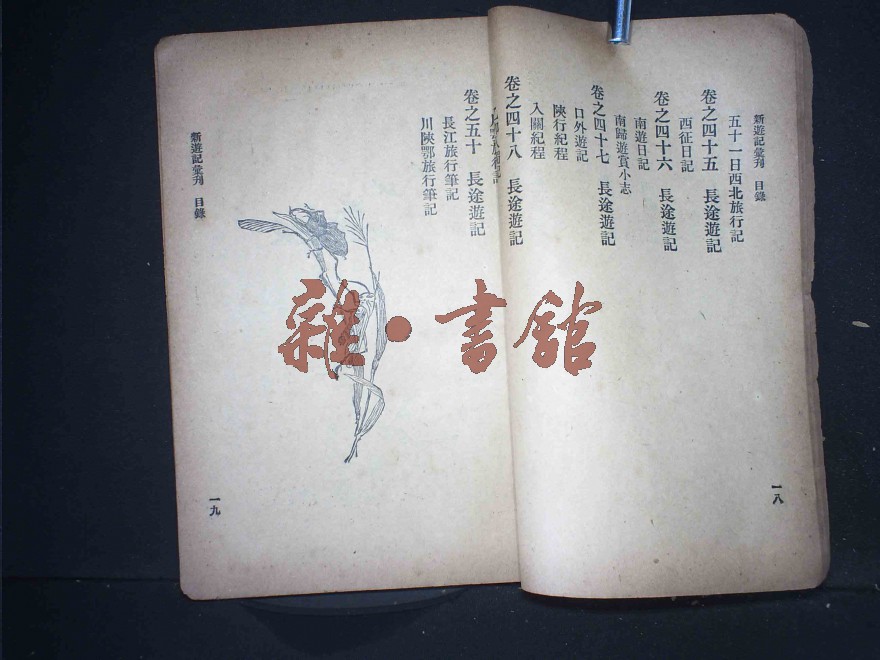 新遊記彙刋　目錄
五十一日西北旅行記
卷之四十五　長途遊記
西征日記
卷之四十六　長途遊記
南遊日記
南歸遊賞小志
卷之四十七　長途遊記
口外遊記
陝行紀程
入關紀程
卷之四十八　長途遊記
一八
卷之五十　長途遊記
長江旅行筆記
川陝鄂旅行筆記
新遊記彙刋　目錄
一九
雜·書館